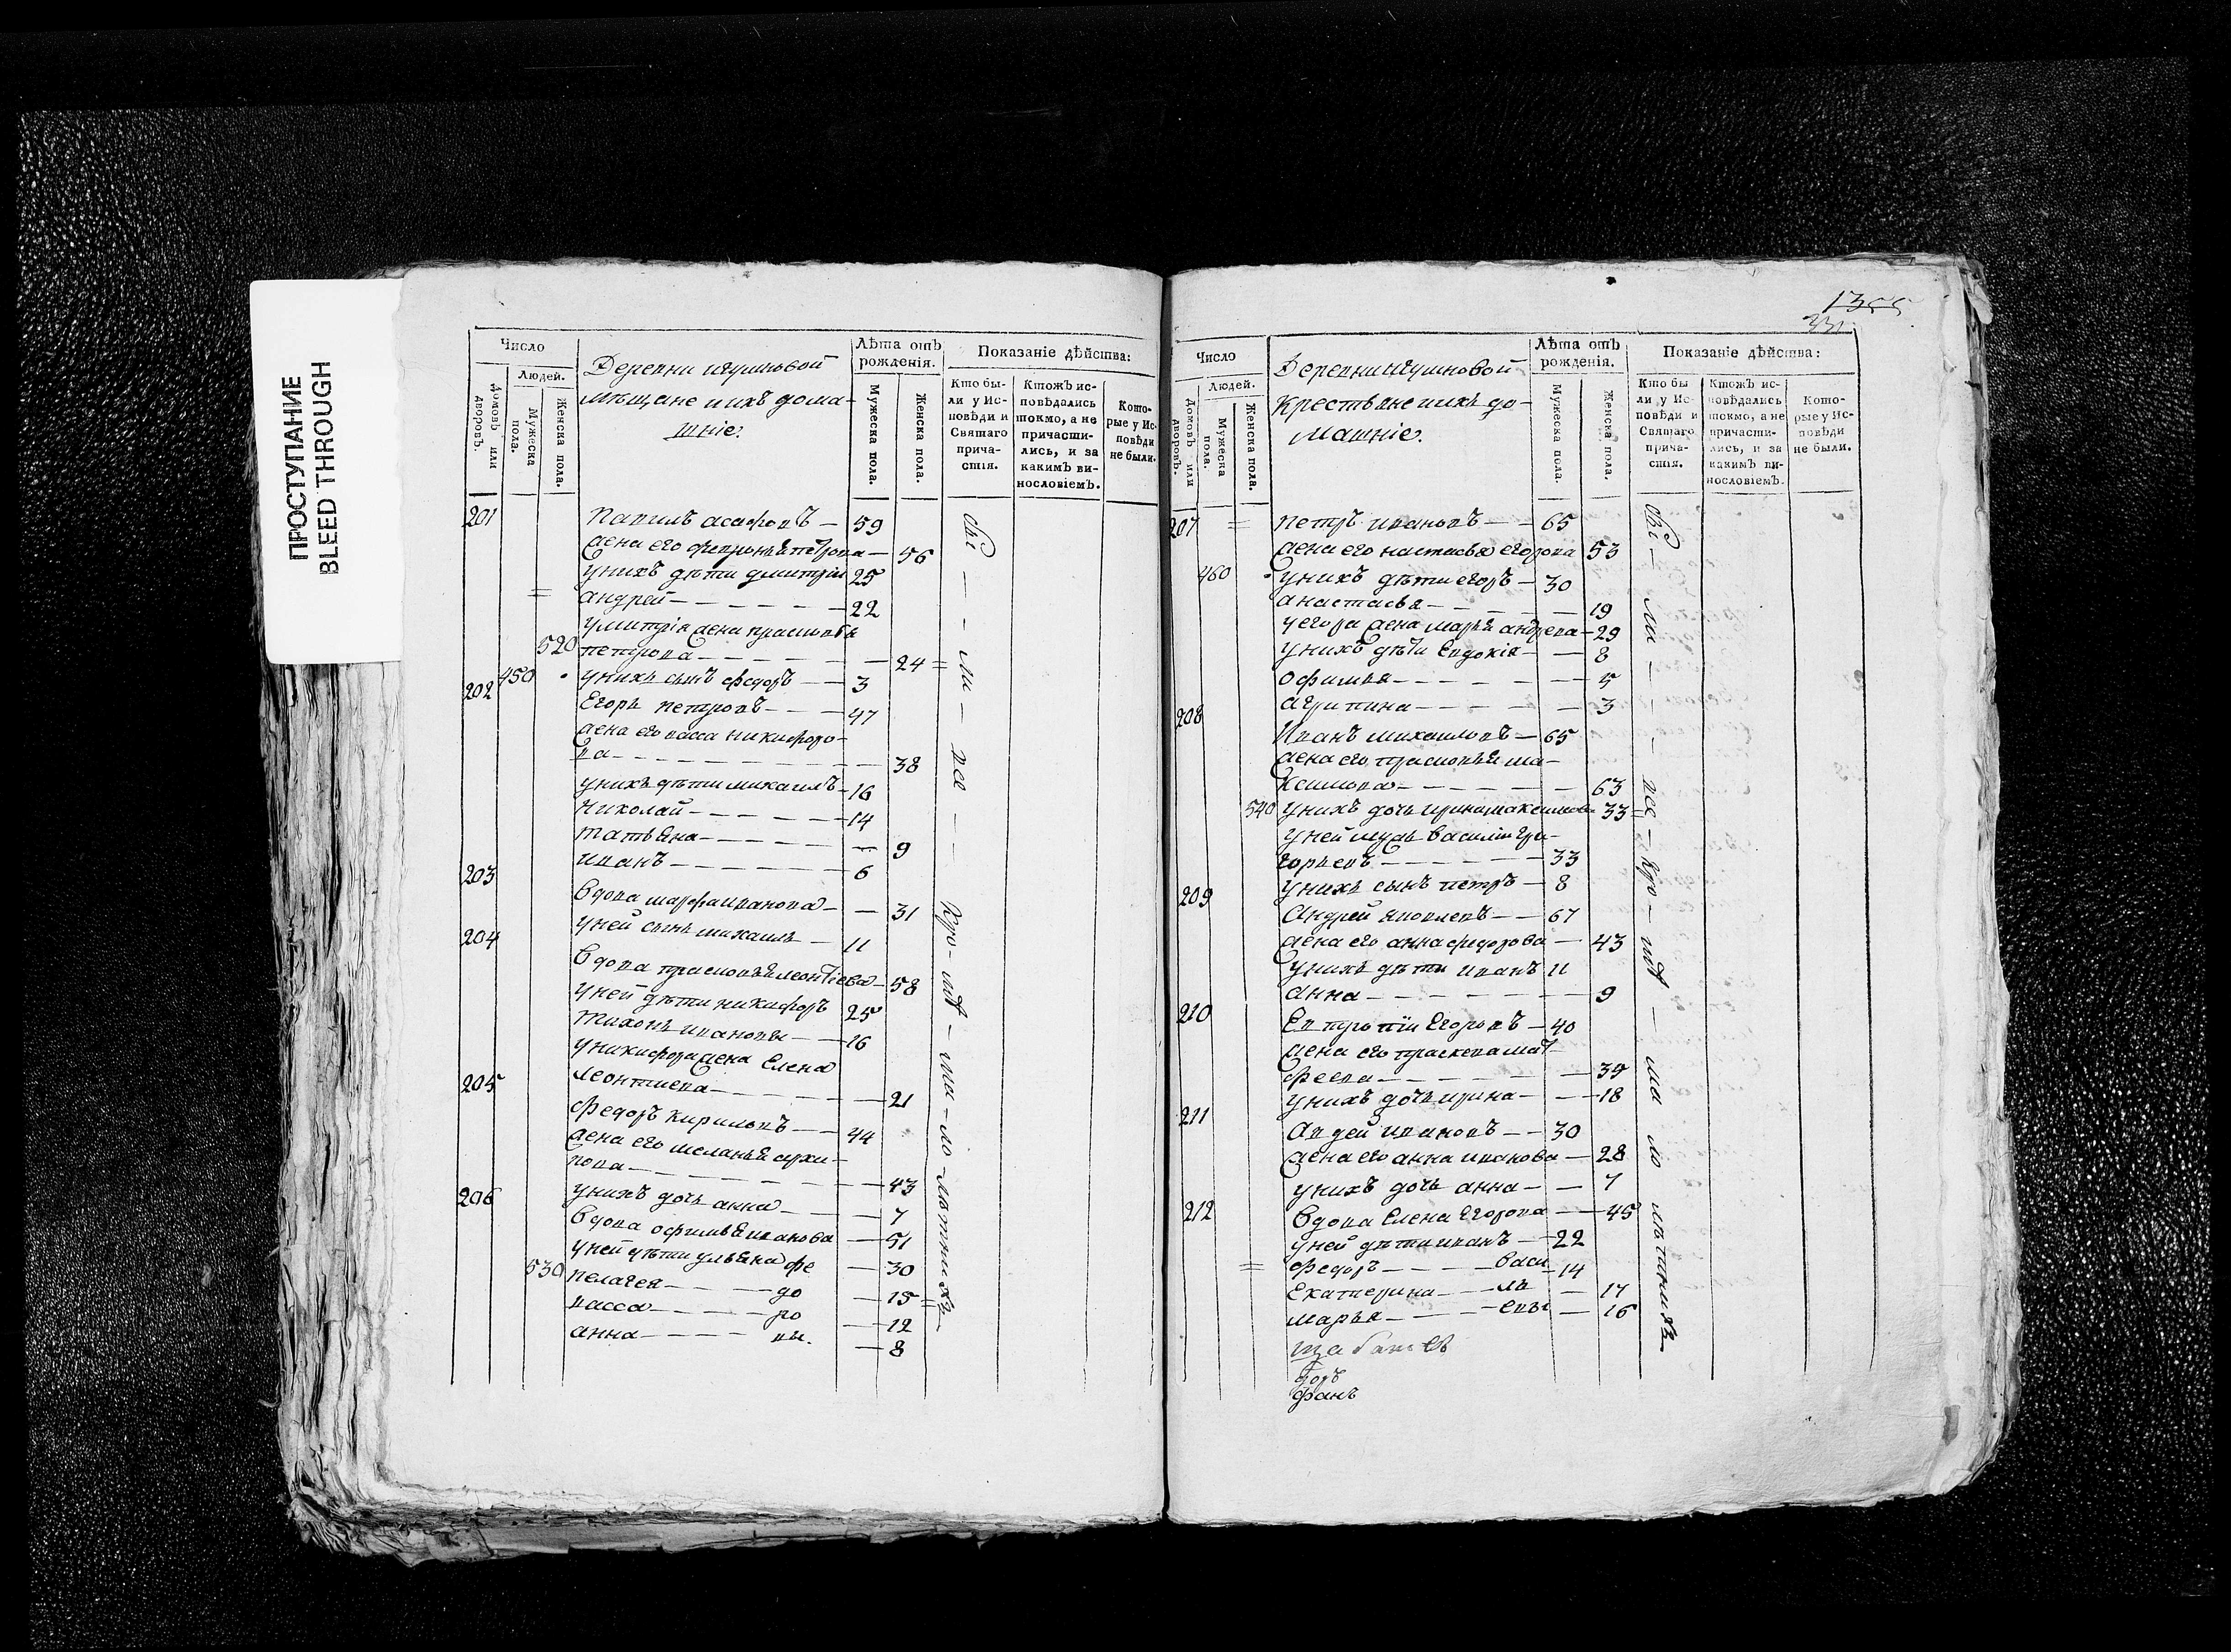 ПРОСТУПАНИЕ
BLEED THROUGH
Число
Людей.
Домовъ или дворовъ.
Мужеска пола.
Женска пола.
Деревни
мѣщане и ихъ дома-
шніе.
Лѣта отъ рожденія.
Мужеска пола.
Женска пола.
Показаніе дѣйства:
Кто бы-
ли у Ис-
повѣди и
Святаго
прича-
стія.
Ктожъ ис-
повѣдались
токмо, а не
причасти-
лись, и за
какимъ ви-
нословіемъ.
Кото-
рые у Ис-
повѣди
не были.
201 — 59
жена его петрова — 56
у нихъ дѣти дмитрій 25
андрей — 22
дмитрія жена прасковья
520 петрова — 24
450 у нихъ сынъ федоръ — 3
202 Егоръ петровъ — 47
жена его васса никифоро-
ва — 38
у нихъ дѣти михаилъ — 16
Николай — 14
татьяна — 9
иванъ — 6
203 вдова марфа иванова — 31
у ней сынъ михаилъ — 11
204 вдова прасковья леонтіева — 58
у ней дѣти никифоръ 25
тихонъ ивановы — 16
у никифора жена Елена
леонтиева — 21
205 федоръ кириловъ — 44
жена его меланья архи-
пова — 43
у нихъ дочь анна — 7
206 вдова офимья иванова — 51
у ней дѣти ульяна фе — 30
530 пелагея — до — 15
васса — ро — 12
анна — вы. — 8
1355
331
Число
Людей.
Домовъ или дворовъ.
Мужеска пола.
Женска пола.
Деревни
крестьяне и ихъ до-
машніе.
Лѣта отъ рожденія.
Мужеска пола.
Женска пола.
Показаніе дѣйства:
Кто бы
ли у Ис-
повѣди и
Святаго
прича-
стія.
Ктожъ ис-
повѣдались
токмо, а не
причасти-
лись, и за
какимъ ви-
нословіемъ.
Кото-
рые у Ис-
повѣди
не были.
207 петръ ивановъ — 65
жена его настасья егорова 53
460 у нихъ дѣти егоръ — 30
анастасья — 19
у егора жена марья андрева — 29
у нихъ дѣти Евдокія — 8
офимья — 5
агрипина — 3
208 Иванъ михаиловъ — 65
жена его прасковья ма-
ксимова — 63
540 у нихъ дочь ирина максимова 33
у ней мужъ василій гри-
горьевъ — 33
у нихъ сынъ петръ — 8
209 Андрей яковлевъ — 67
жена его анна федорова — 43
у нихъ дѣти иванъ 11
анна — 9
210 Евтропіи Егоровъ — 40
жена его праскева мат-
феева — 39
у нихъ дочь ирина — 18
211 Авдей ивановъ — 30
жена его анна иванова — 28
у нихъ дочь анна — 7
212 вдова Елена Егорова — 45
у ней дѣти иванъ — 22
федоръ — васи — 14
Екатерина — лье — 17
марья — евы — 16